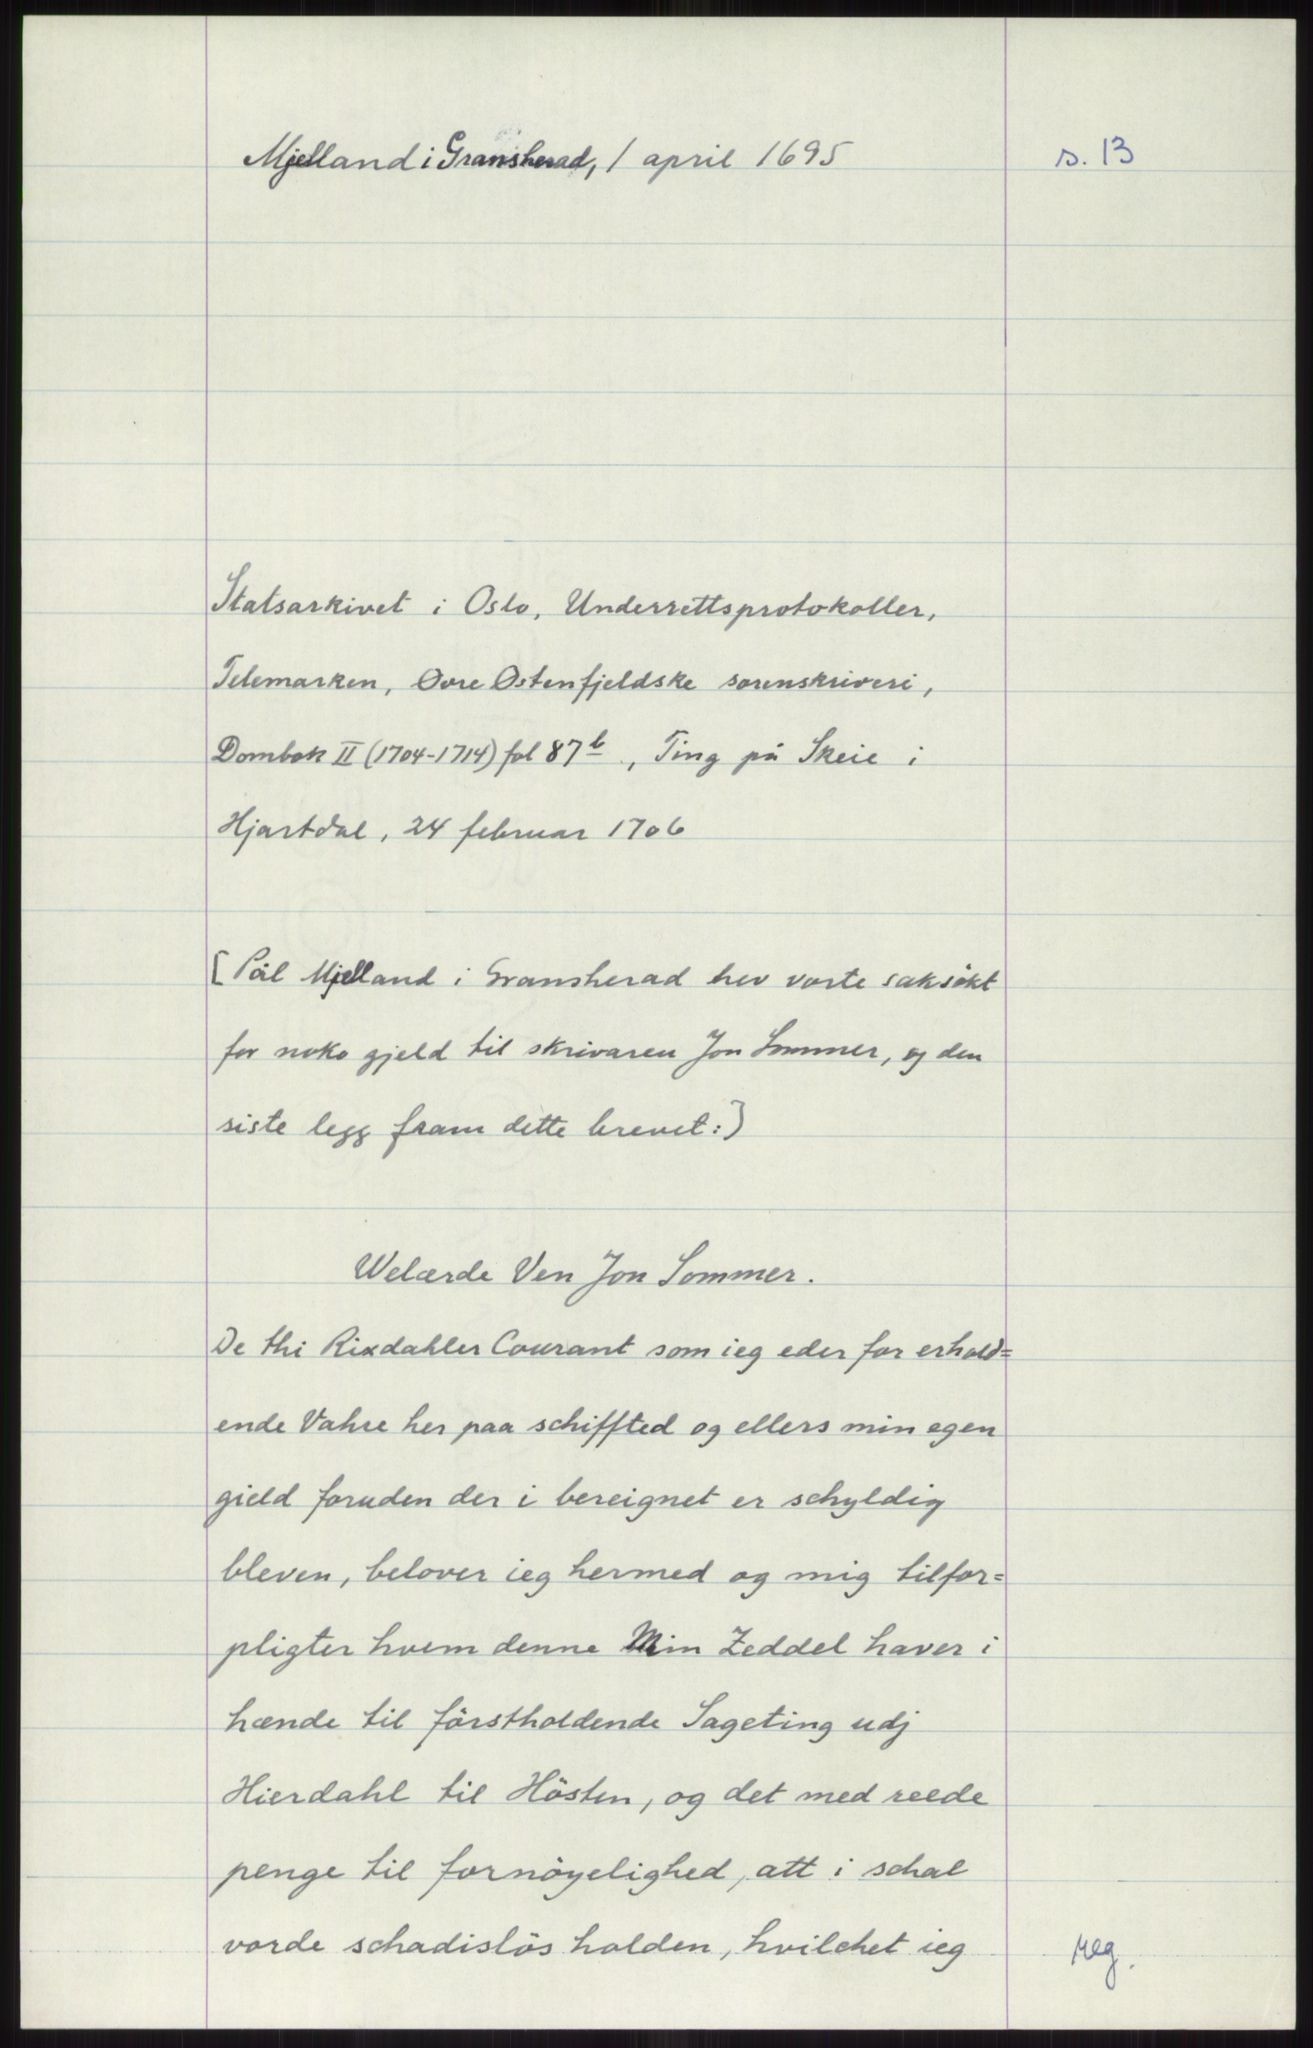 Mjelland i Gransherad, 1 april 1695
s. 13
Statsarkivet i Oslo, Underrettsprotokoller,
Telemarken, Øvre Østenfjeldske sorenskriveri,
Dombok II (1704-1714) fol 87b, Ting på Skeie i
Hjartdal, 24 februar 1706
[Pål Mjelland i Gransherad hev vorte saksökt
for noko gjeld til skrivaren Jon Sommer, og den
siste legg fram dette brevet:]
Welærde Ven Jon Sommer.
De thi Rixdahler Courant som ieg eder for erhold=
ende Vahre her paa schiffted og ellers min egen
gield foruden der i bereignet er schyldig
bleven, belover ieg hermed og mig tilfor=
pligter hvem denne Min Zeddel haver i
hænde til förstholdende Sageting udj
Hierdahl til Hösten, og det med reede
penge til fornöyelighed, att i schal
vorde schadislös holden, hvilchet ieg
reg.